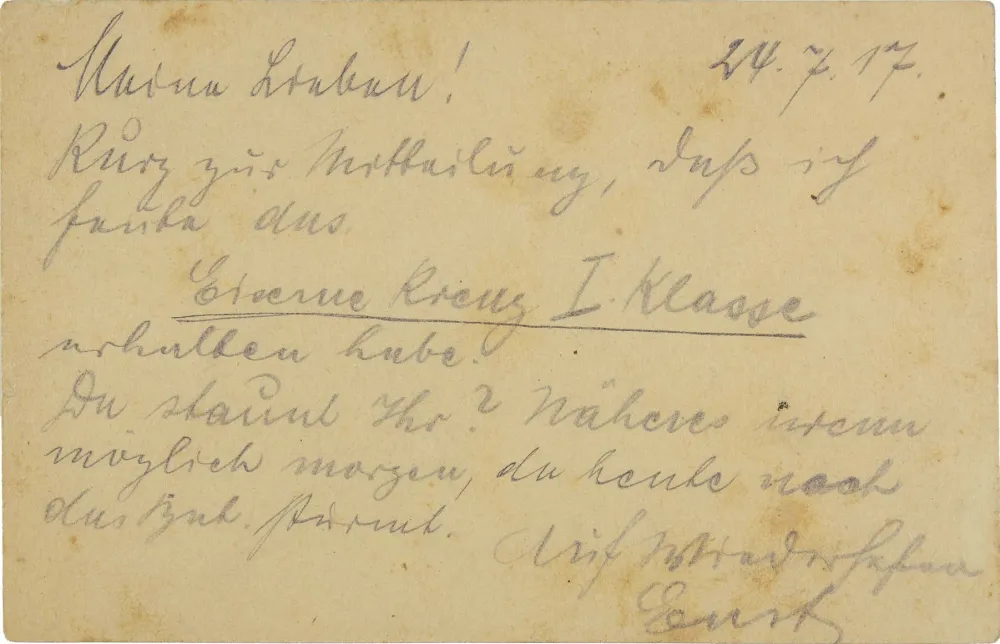 24.7.17.
Meine Lieben!
Kurz zur Mitteilung, daß ich
heute das
Eiserne Kreuz I. Klasse
erhalten habe.
Da staunt Ihr? Näheres wenn
möglich morgen, da heute noch
das stürmt.
Auf Wiedersehen
Ernst